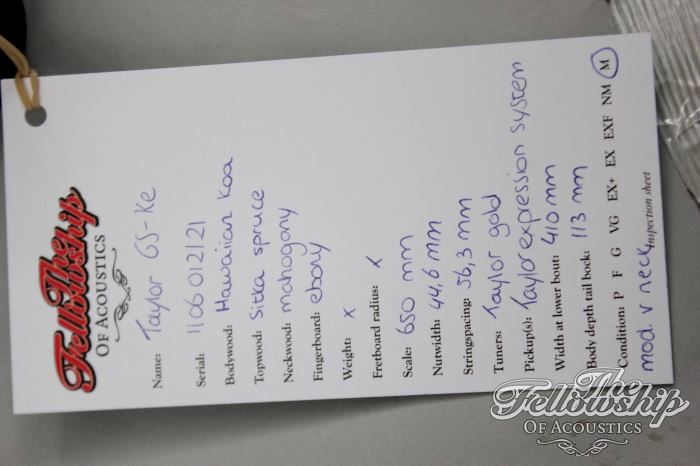 The
Fellowship
OF ACOUSTICS
Name: Taylor GS-Ke
Serial: 1106012121
Bodywood: Hawaiian Koa
Topwood: Sitka spruce
Neckwood: mahogony
Fingerboard: ebony
Weight: X
Fretboard radius: X
Scale: 650 mm
Nutwidth: 44,6 mm
Stringspacing: 56,3 mm
Tuners: Taylor gold
Pickup(s): Taylor expression system
Width at lower bout: 410 mm
Body depth tail bock: 113 mm
Condition: P F G VG EX+ EX EXF NM M
mod. V neck
Inspection sheet
The
Fellowship
OF ACOUSTICS